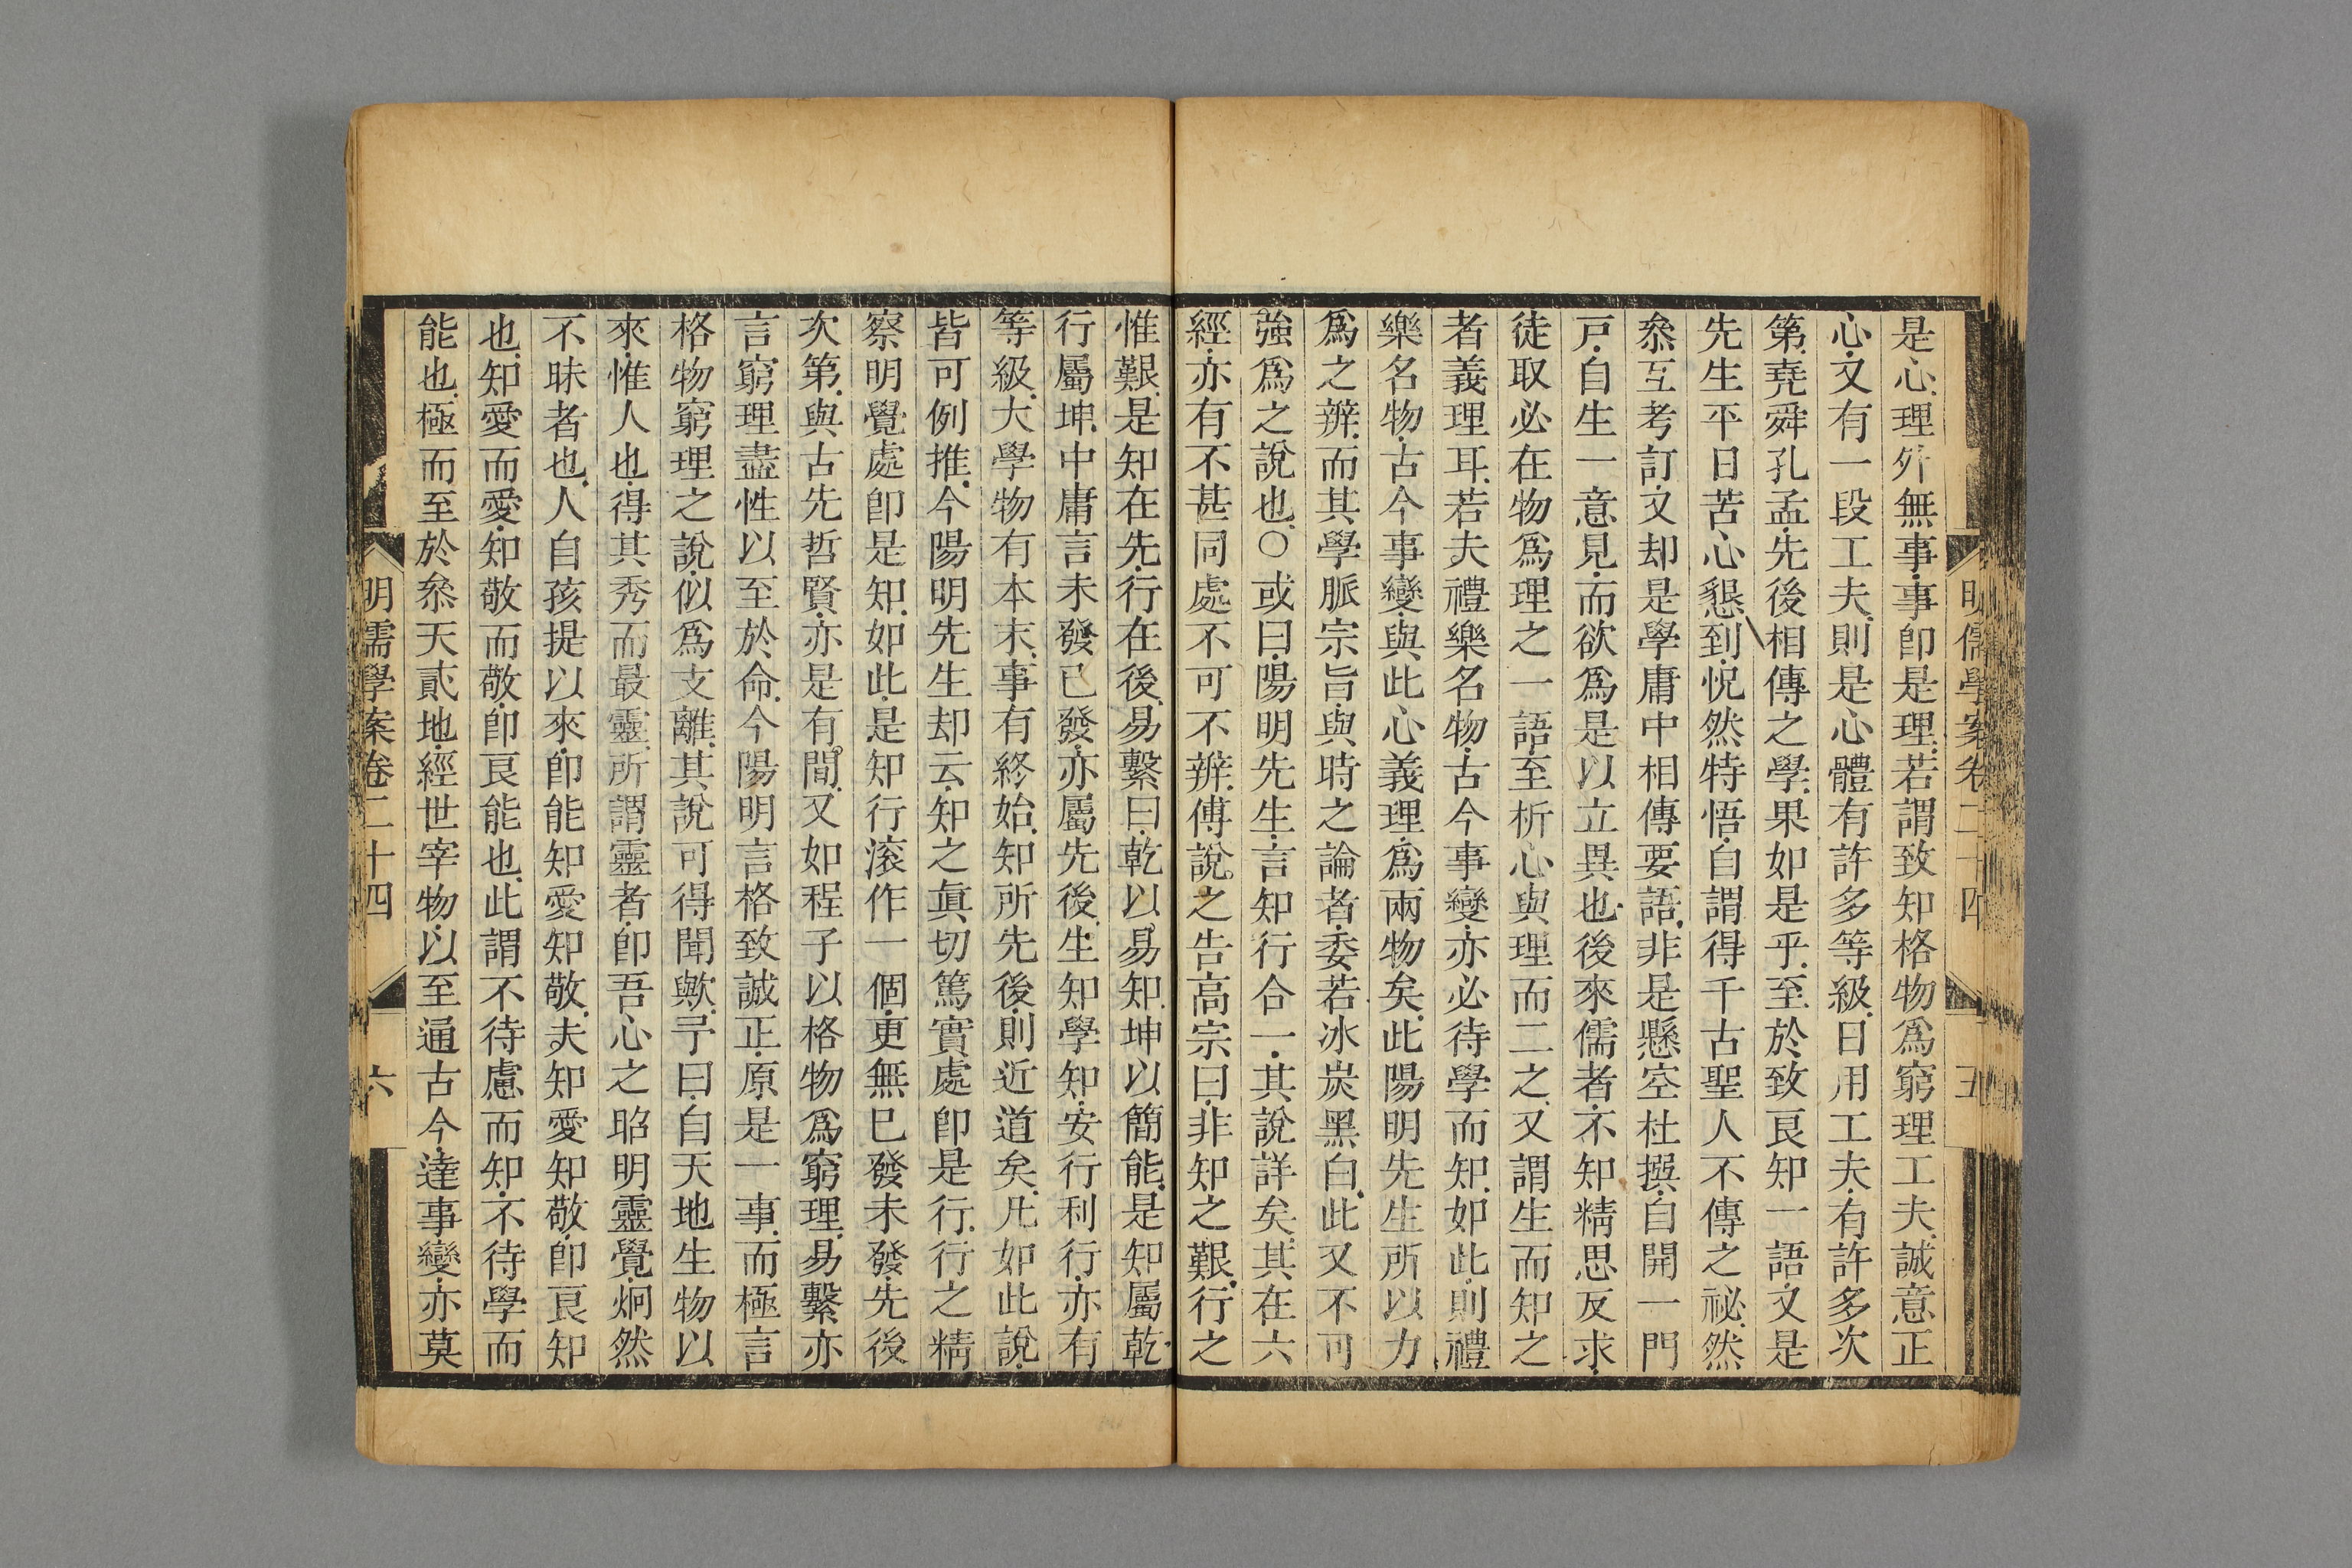 明儒學案卷二十四 五
是心理外無事事卽是理若謂致知格物爲窮理工夫誠意正
心又有一段工夫則是心體有許多等級日用工夫有許多次
第堯舜孔孟先後相傳之學果如是乎至於致良知一語又是
先生平日苦心懇到恍然特悟自謂得千古聖人不傳之祕然
叅互考訂又却是學庸中相傳要語非是懸空杜撰自開一門
戸自生一意見而欲爲是以立異也後來儒者不知精思反求
徒取必在物爲理之一語至析心與理而二之又謂生而知之
者義理耳若夫禮樂名物古今事變亦必待學而知如此則禮
樂名物古今事變與此心義理爲兩物矣此陽明先生所以力
爲之辨而其學脈宗旨與時之論者委若冰炭黑白此又不可
強爲之說也○或曰陽明先生言知行合一其說詳矣其在六
經亦有不甚同處不可不辨傅說之告高宗曰非知之艱行之
惟艱是知在先行在後易繫曰乾以易知坤以簡能是知屬乾
行屬坤中庸言未發已發亦屬先後生知學知安行利行亦有
等級大學物有本末事有終始知所先後則近道矣凡如此說
皆可例推今陽明先生却云知之眞切篤實處卽是行行之精
察明覺處卽是知如此是知行滚作一個更無巳發未發先後
次第與古先哲賢亦是有間又如程子以格物爲窮理易繫亦
言窮理盡性以至於命今陽明言格致誠正原是一事而極言
格物窮理之說似爲支離其說可得聞歟予曰自天地生物以
來惟人也得其秀而最靈所謂靈者卽吾心之昭明靈覺炯然
不昧者也人自孩提以來卽能知愛知敬夫知愛知敬卽良知
也知愛而愛知敬而敬卽良能也此謂不待慮而知不待學而
能也極而至於叅天貳地經世宰物以至通古今達事變亦莫
明儒學案卷二十四 六